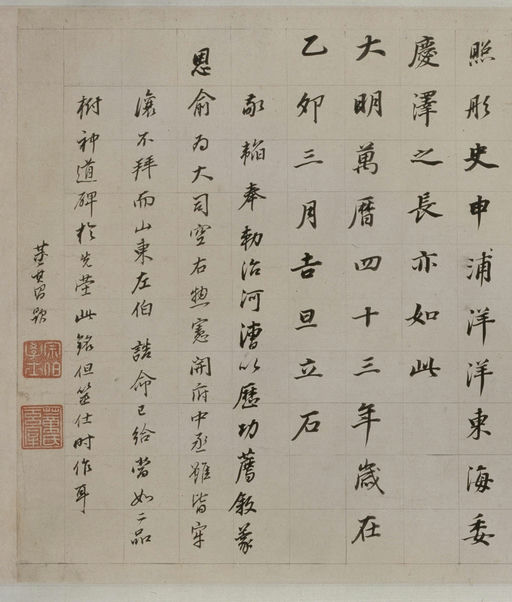 照彤史申浦洋洋東海委
慶澤之長亦如此
大明萬曆四十三年歲在
乙卯三月吉旦立石
敬韜奉勅治河漕以歷功薦敘蒙
恩俞為大司空右揔憲開府中丞雖皆牢
讓不拜而山東左伯誥命已給當如二品
樹神道碑於先塋此銘但筮仕時作耳
董其昌題
宗伯學士
董氏玄宰